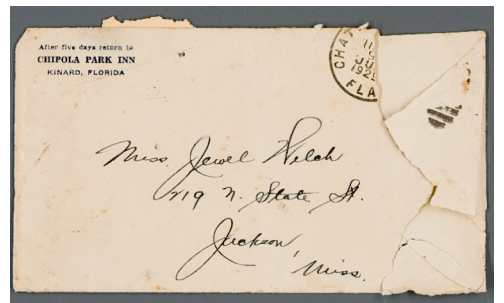 After five days return to
CHIPOLA PARK INN
KINARD, FLORIDA
CHAT
FLA
Miss Jewel Welch
219 N. State St.
Jackson,
Miss.